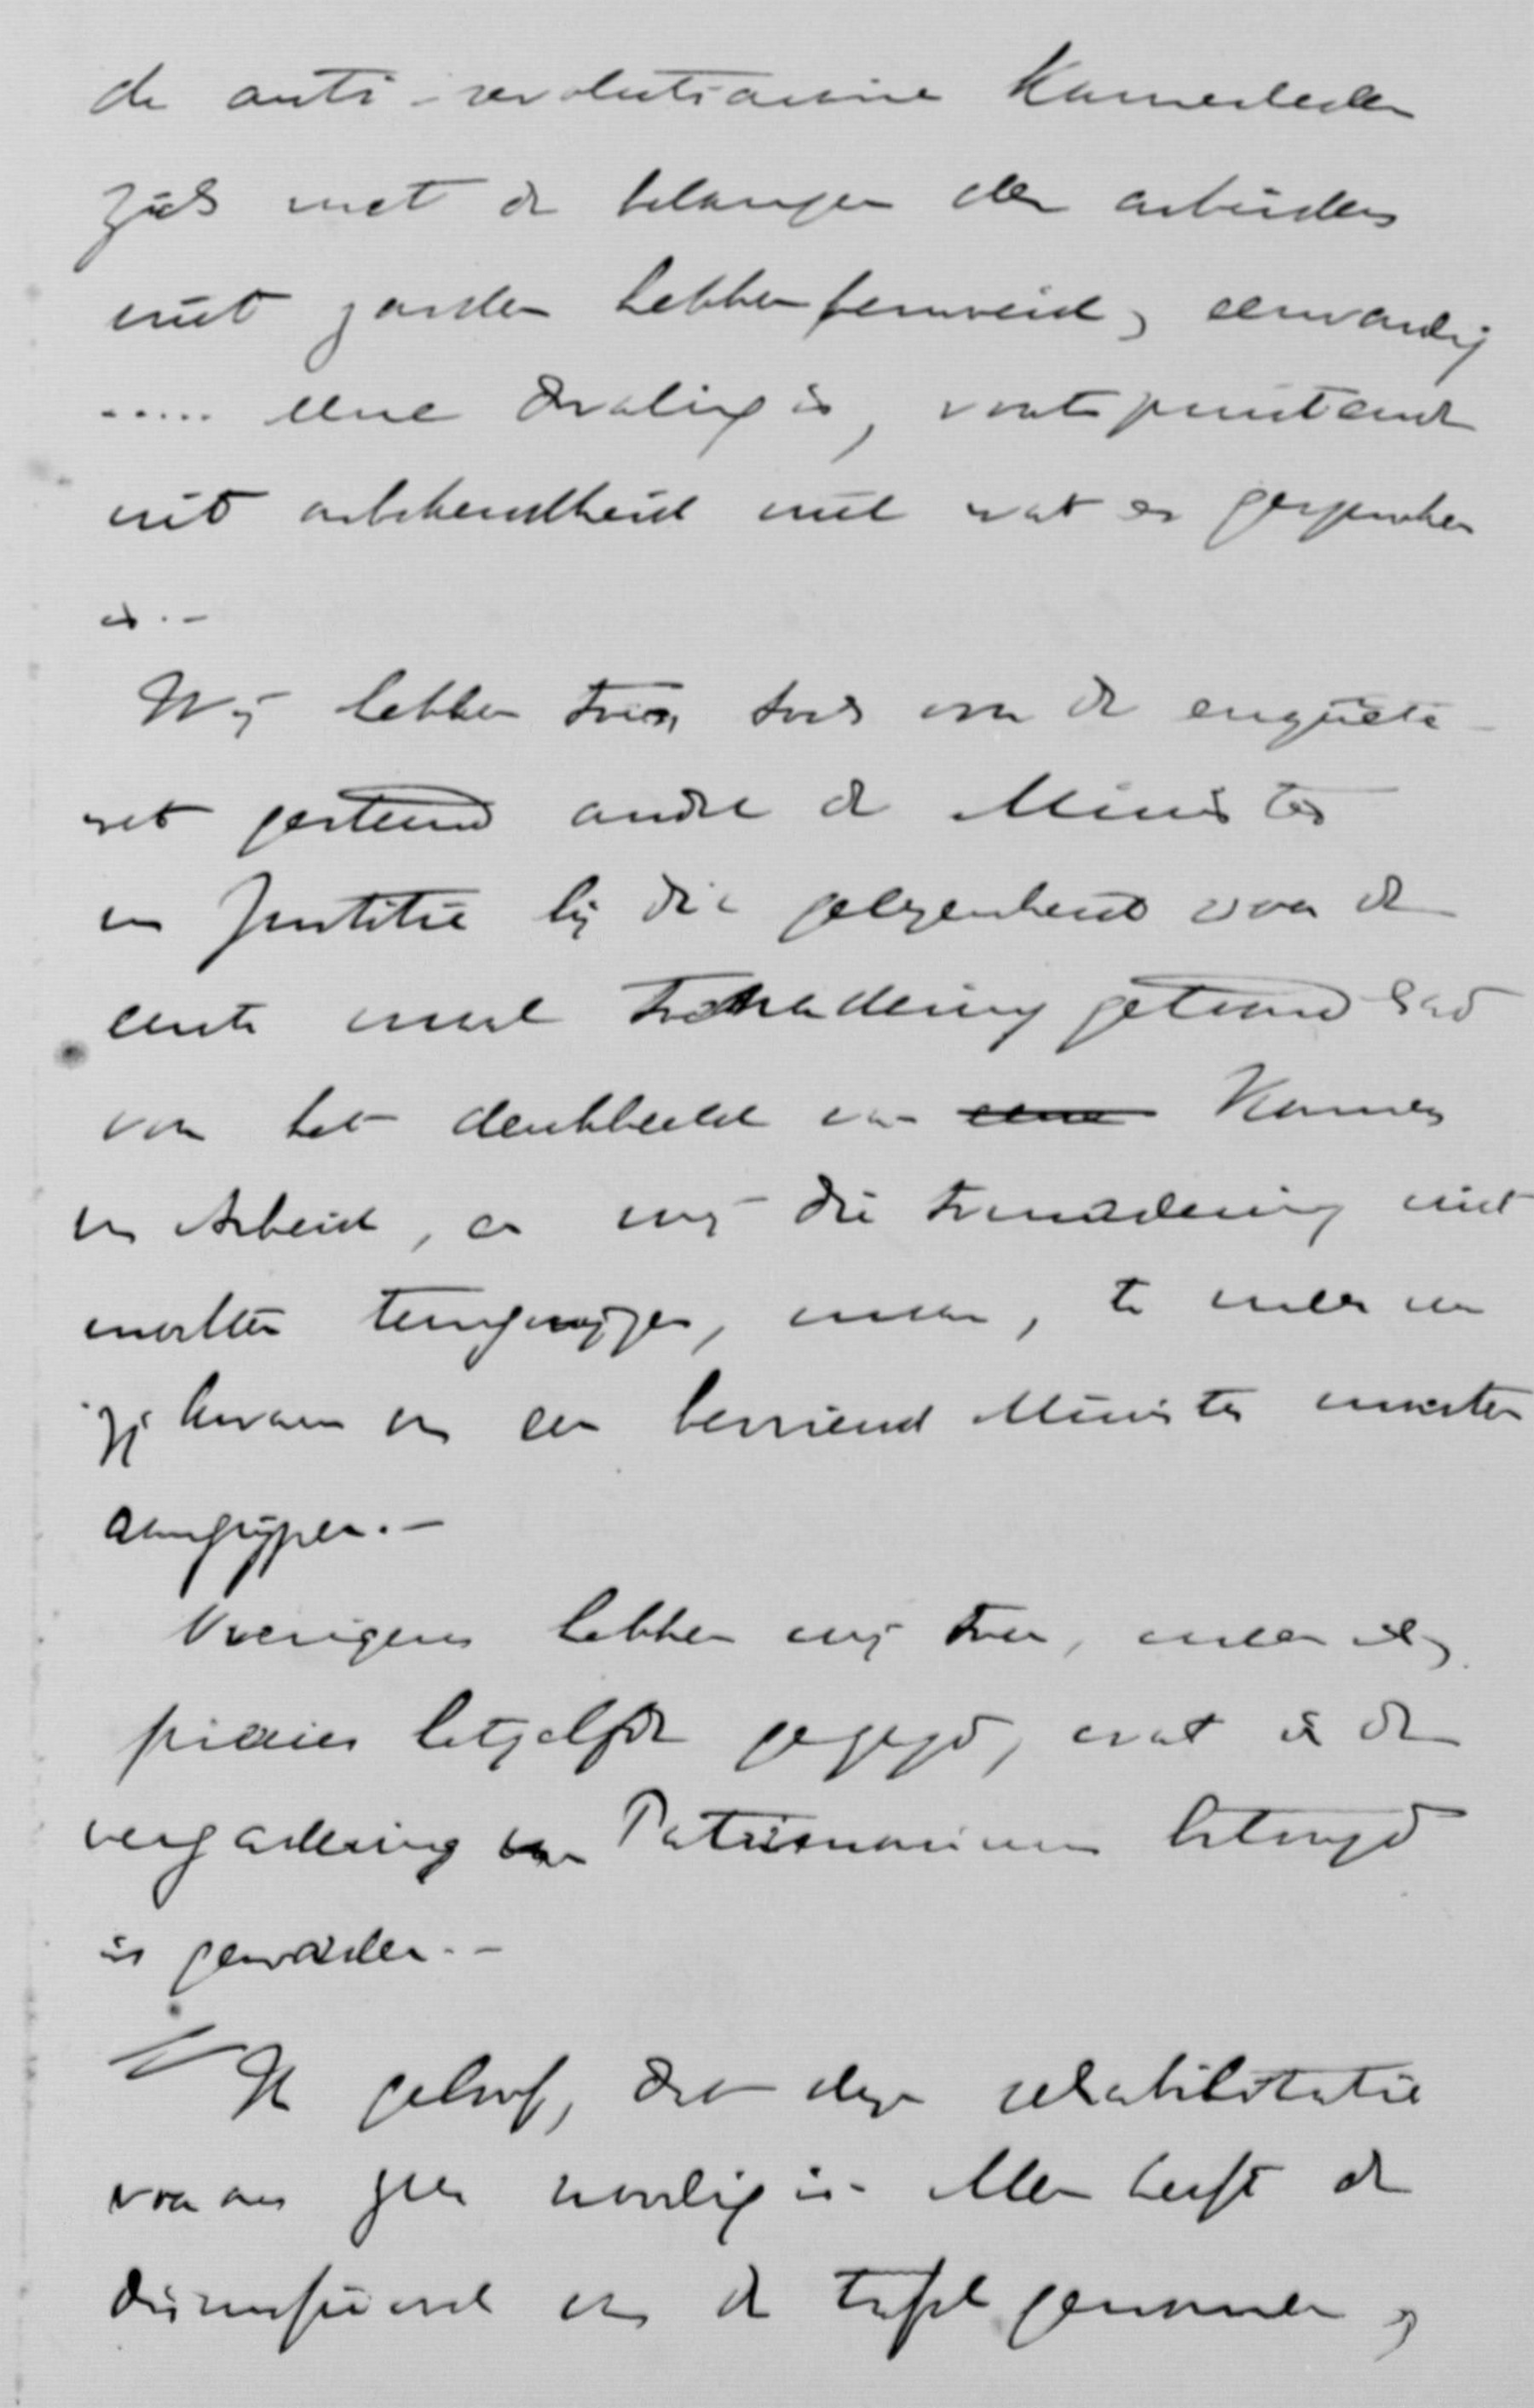 de anti-revolutionaire Kamerleden
zich met de belangen der arbeiders
niet zouden hebben bemoeid, eenvoudig
..... eene dwaling is, voortspruitend
uit onbekendheid met wat er gesproken
is.-
Wij hebben toen, toch over de enquête-
wet gestemd nadat de Minister
van Justitie bij die gelegenheid voor de
eerste maal toenadering getoond had
voor het denkbeeld van eene Kamers
van Arbeid, en wij die toenadering niet
mochten terugwijzen, maar, te meer nu
zij kwam van een bevriend Minister moesten
aangrijpen.-
Overigens hebben wij toen, meen ik,
precies hetzelfde gezegd, wat in de
vergadering van Patrimonium betuigd
is geworden.-
Ik geloof, dat deze rehabilitatie
voor ons zeer noodig is. Men heeft de
van de tafel genomen,